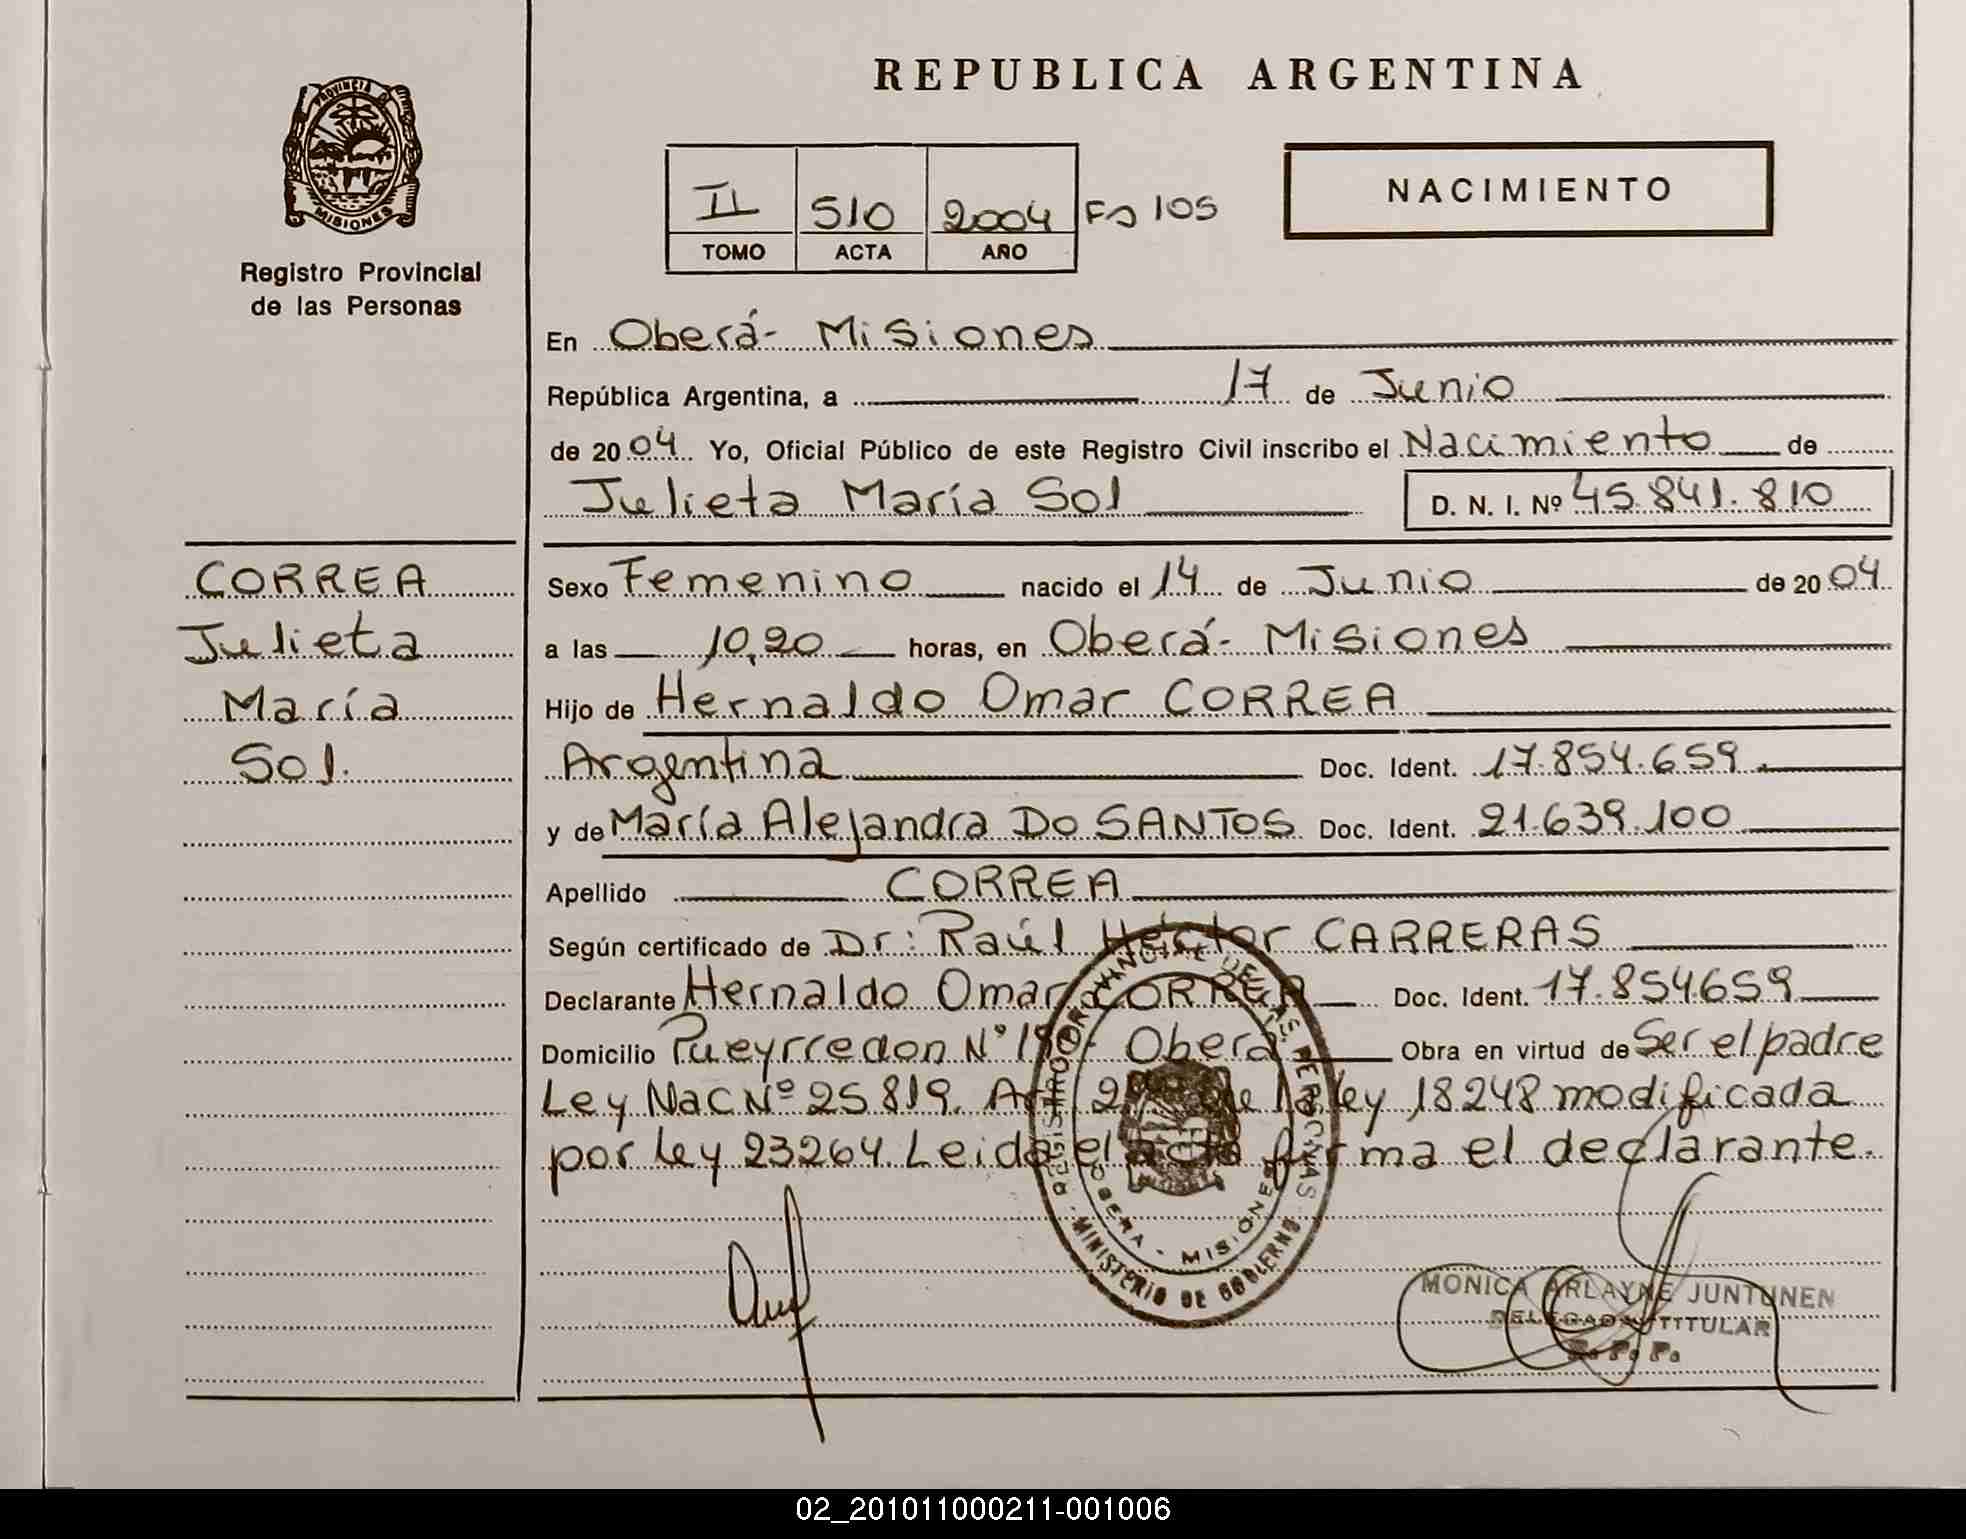 REPUBLICA ARGENTINA
PROVINCIA DE
MISIONES
Registro Provincial
de las Personas
II 510 2004 Fo 105
TOMO ACTA AÑO
NACIMIENTO
En Oberá- Misiones
República Argentina, a 17 de Junio
de 2004 Yo, Oficial Público de este Registro Civil inscribo el Nacimiento de
Julieta María Sol D. N. I. Nº 45.841.810
CORREA
Julieta
María
Sol.
Sexo Femenino nacido el 14 de Junio de 2004
a las 10,20 horas, en Oberá- Misiones
Hijo de Hernaldo Omar CORREA
Argentina Doc. Ident. 17.854.659
y de María Alejandra Do SANTOS Doc. Ident. 21.639.100
Apellido CORREA
Según certificado de Dr: Raúl Héctor CARRERAS
Declarante Hernaldo Omar CORREA Doc. Ident. 17.854659
Domicilio Pueyrredon Nº Oberá Obra en virtud de Ser el padre
Ley Nac Nº 25.819. Art de la ley 18248 modificada
por ley 23264. Leida el acta firma el declarante.
REGISTRO PROVINCIAL DE LAS PERSONAS
OBERA - MISIONES
MINISTERIO DE GOBIERNO
MONICA ARLAYNE JUNTUNEN
DELEGADA TITULAR
R. P. P.
02_201011000211-001006